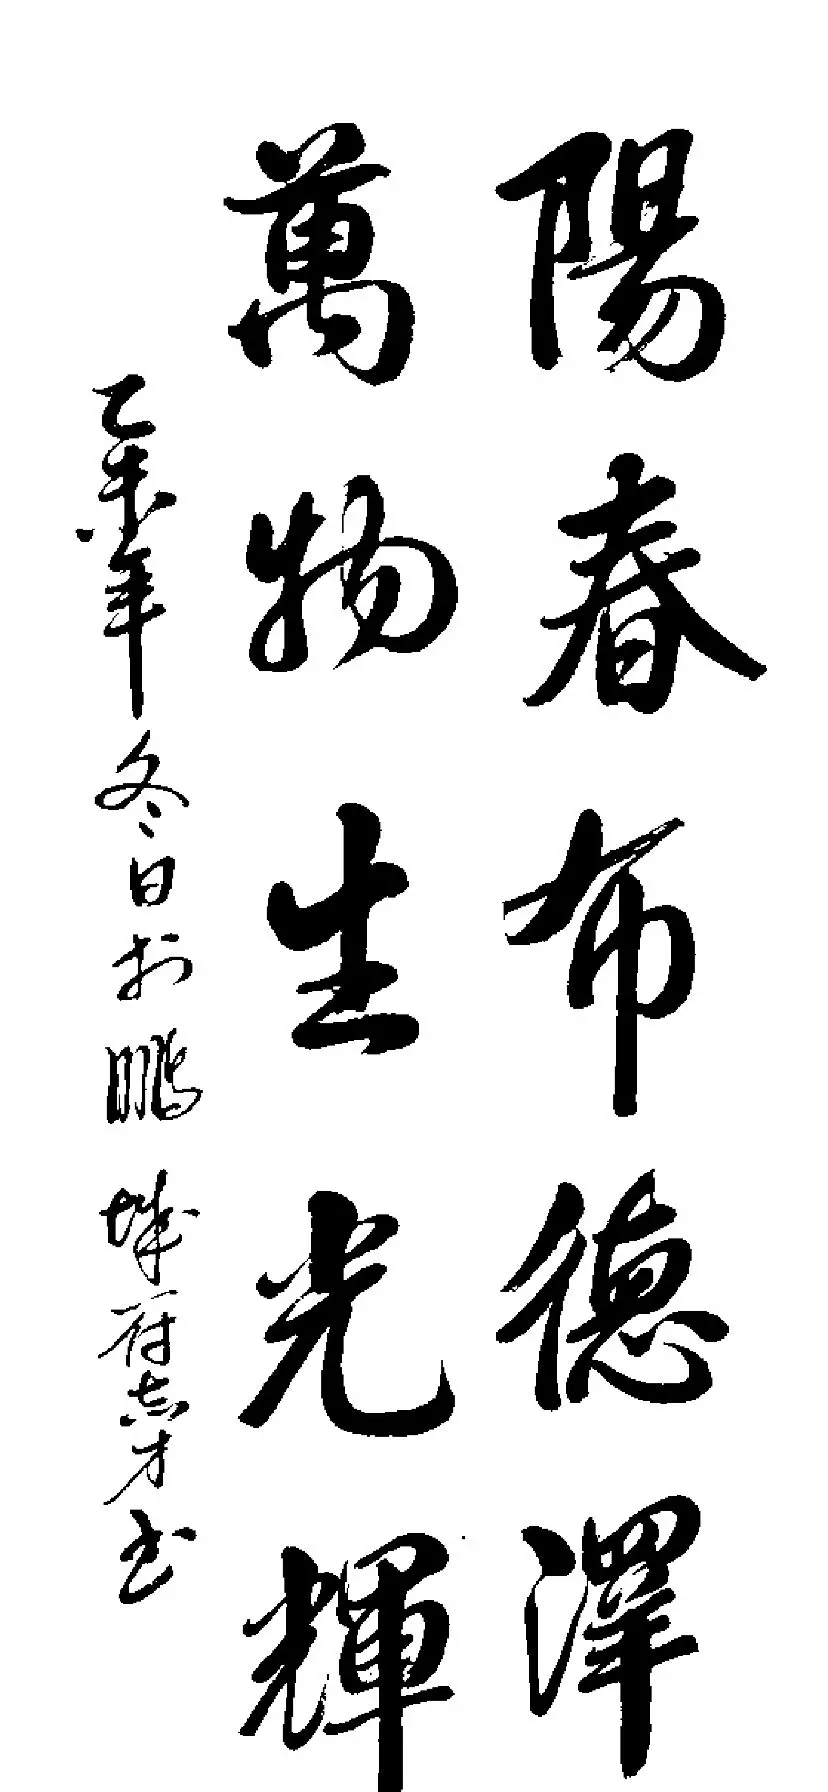 陽春布德澤
萬物生光輝
乙未年冬日於鵬城府志才书